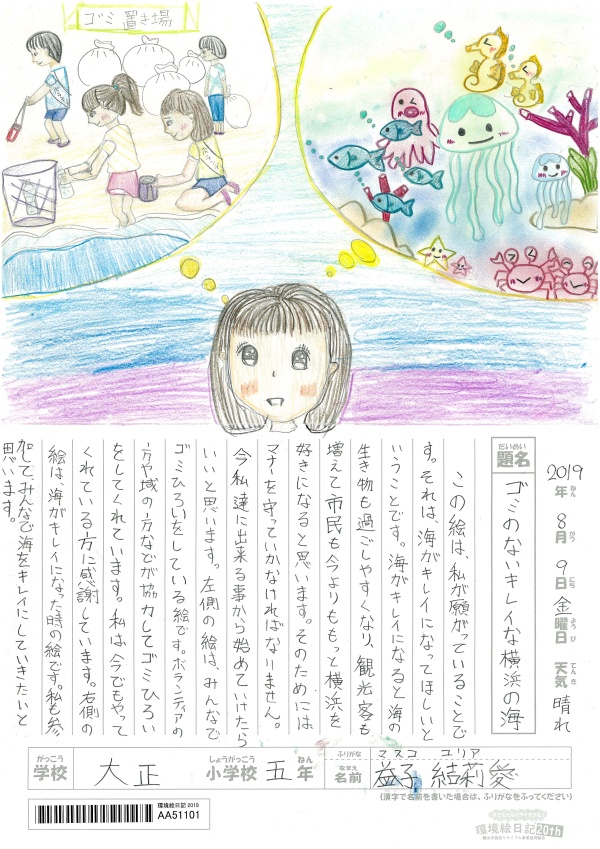 ゴミ置き場
2019年8月9日金曜日 天気 晴れ
ねん
がつ
にち
ようび
てんき
だいめい
題名
ゴミのないキレイな横浜の海
この絵は、私が願がっていることで
す。それは、海がキレイになってほしいと
いうことです。海がキレイになると海の
生き物も過ごしやすくなり、観光客も
増えて市民も今よりももっと横浜を
好きになると思います。そのためには
マナーを守っていかなければなりません。
今私達に出来る事から始めていけたら
いいと思います。左側の絵は、みんなで
ゴミひろいをしている絵です。ボランティアの
方や域の方などが協力してゴミひろい
をしてくれています。私は、今でもやって
くれている方に感謝しています。右側の
絵は、海がキレイになった時の絵です。私も参
加して、みんなで海をキレイにしていきたいと
思います。
がっこう
学校
大正
しょうがっこう
小学校
五
ねん
年
ふりがな
マスコ ユリア
なまえ
名前
益子 結莉愛
(漢字で名前を書いた場合は、ふりがなをふってください)
環境絵日記2019
AA51101
環境絵日記20th